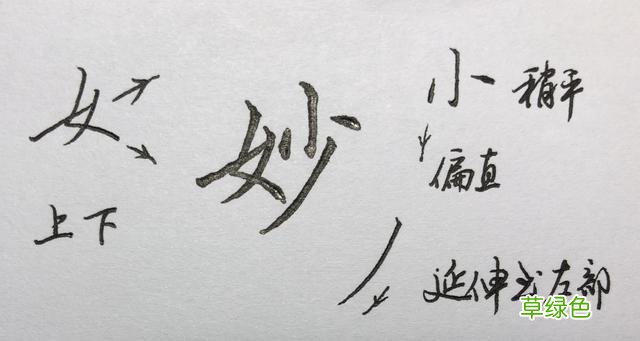 女
上下
妙
小 稍平
偏直
延伸出左部
草绿色